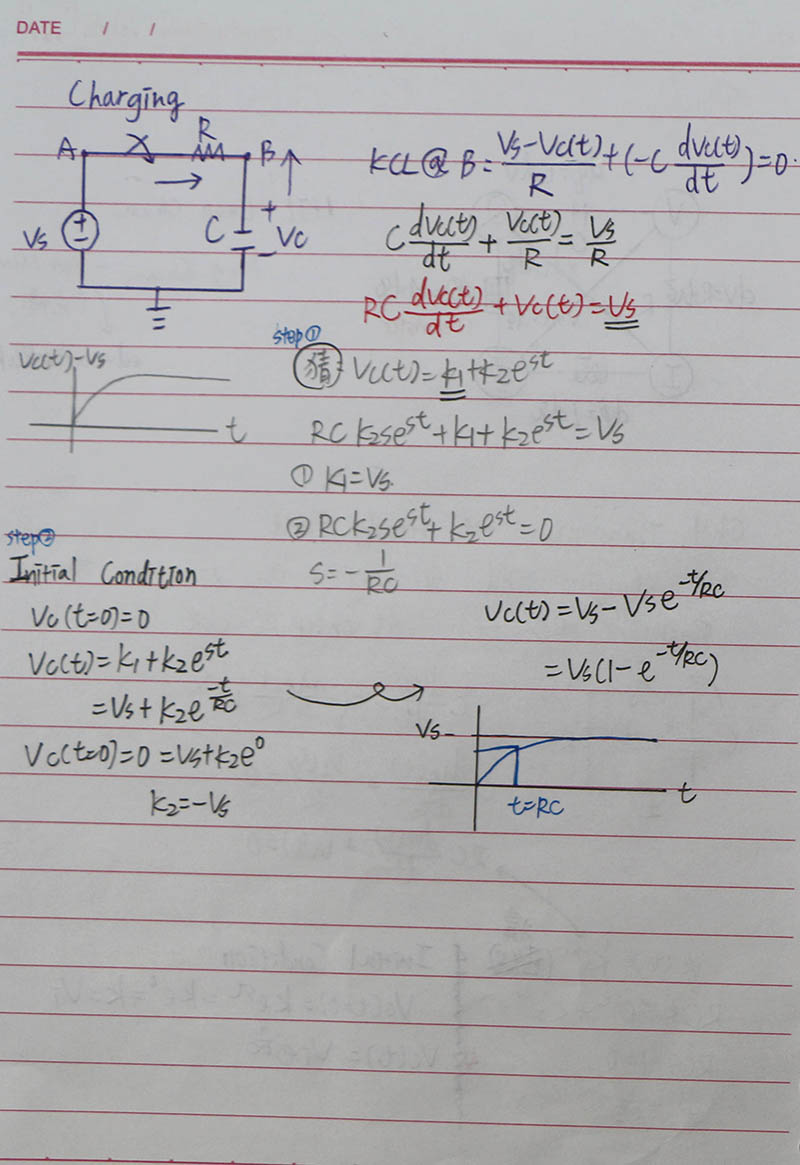 DATE / /
Charging
A R B
Vs + − C + − Vc
KCL @ B = Vs−Vc(t)/R + (−C dVc(t)/dt) = 0.
C dVc(t)/dt + Vc(t)/R = Vs/R
RC dVc(t)/dt + Vc(t) = Vs
Vc(t)−Vs
t
step①
猜: Vc(t) = k1 + k2e^st
RC k2se^st + k1 + k2e^st = Vs
① k1 = Vs.
② RCk2se^st + k2e^st = 0
S = − 1/RC
step②
Initial Condition
Vc(t=0)=0
Vc(t) = k1 + k2e^st
= Vs + k2e^−t/RC
Vc(t=0) = 0 = Vs + k2e^0
k2 = −Vs
Vc(t) = Vs − Vse^−t/RC
= Vs(1 − e^−t/RC)
Vs
t
t=RC